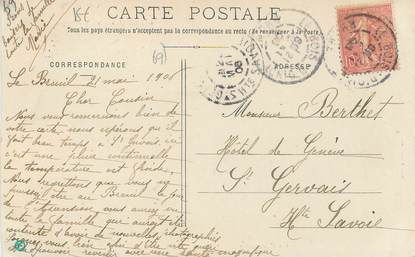 CARTE POSTALE
Tous les pays étrangers n'acceptent pas la correspondance au recto (Se renseigner à la Poste)
CORRESPONDANCE
ADRESSE
(69)
Le Breuil 21 mai 1906
Cher Cousin
Nous vous remercions bien de
votre carte nous espérons qu'il
fait beau temps à St Gervais ici
c'est une pluie continuelle
la température est froide,
Nous regrettons que vous ne
puissiez être au Breuil le jour
de l'Ascension vous auriez
toute la famille qui aurait été
contente d'avoir de nouvelles photographies
revenir avec une santé magnifique
Monsieur Berthet
Hôtel de Genève
St Gervais
Hte Savoie